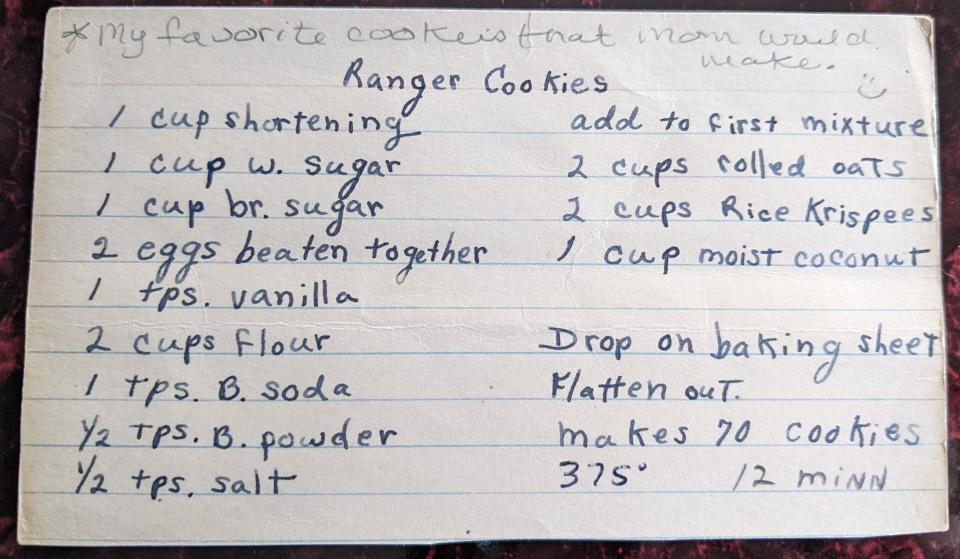 *My favorite cookeis that mom would
make.
Ranger Cookies
1 cup shortening
1 cup w. sugar
1 cup br. sugar
2 eggs beaten together
1 tps. vanilla
2 cups flour
1 tps. B. soda
1/2 tps. B. powder
1/2 tps. salt
add to first mixture
2 cups rolled oats
2 cups Rice Krispees
1 cup moist coconut
Drop on baking sheet
Flatten out.
makes 70 cookies
375° 12 minn